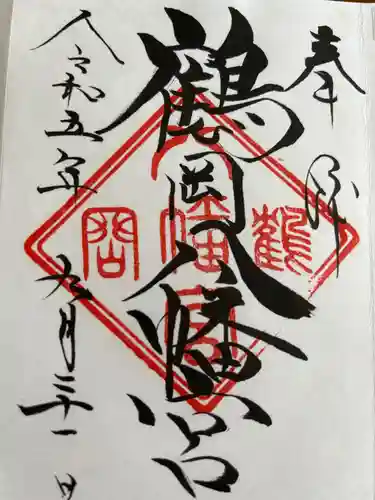 奉拝
鶴岡八幡宮
令和五年九月二十一日
鶴
八幡宮
岡